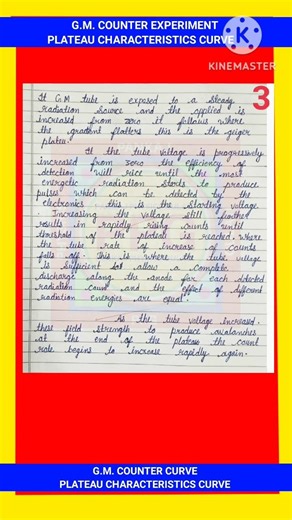 G.M. COUNTER EXPERIMENT
PLATEAU CHARACTERISTICS CURVE
KINEMASTER
3
If G.M tube is exposed to a steady
radiation source and the applied is
increased from zero it follows where
the gradient flatters this is the geiger
plateu.
If the tube voltage is progressively
increased from zero the efficiency of
detection will rise until the most
energetic radiation starts to produce
pulses which can be ditected by the
electronics. this is the starting voltage
Increasing the voltage still further
results in rapidly rising counts until
threshold of the plateau is reached. Where
the tube rate of increase of counts
falls off. This is where the tube voltage
is sufficient to allow a complete
discharge along the anode for each ditected
radiation count and the effect of different
radiation energies are equal.
As the tube voltage increased.
these field strength to produce avalanches
at the end of the plateau the count
rate begins to increase rapidly again.
G.M. COUNTER CURVE
PLATEAU CHARACTERISTICS CURVE